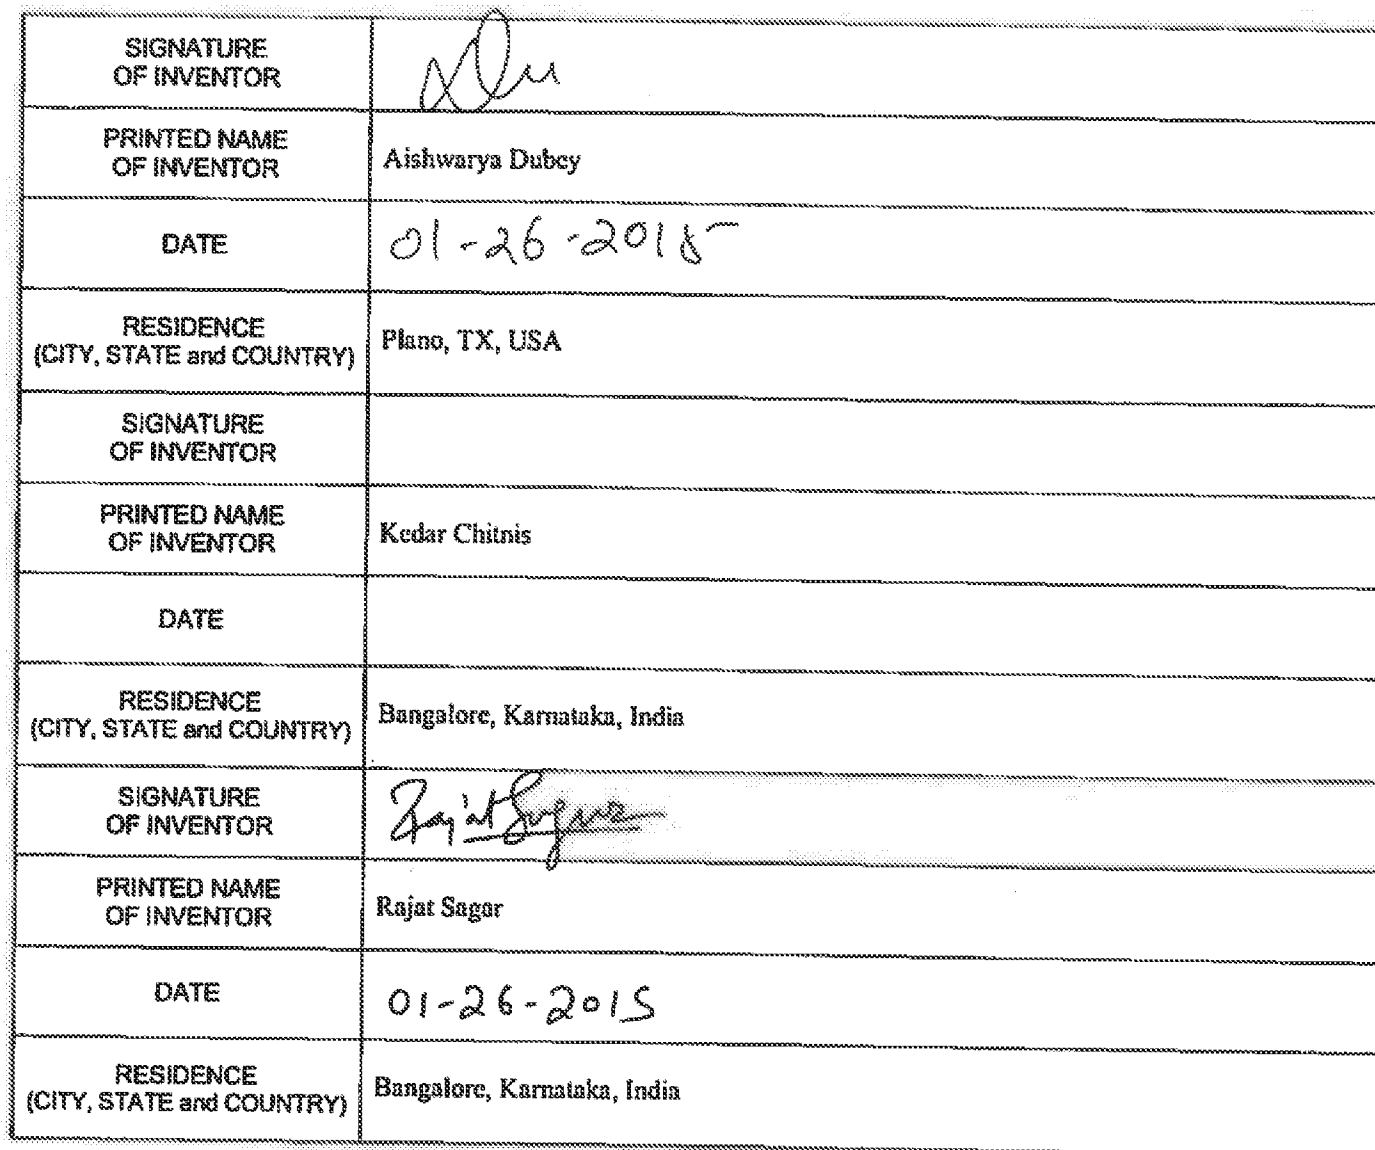 SIGNATURE
OF INVENTOR
PRINTED NAME
OF INVENTOR
Aishwarya Dubey
DATE
01-26-2015
RESIDENCE
(CITY, STATE and COUNTRY)
Plano, TX, USA
SIGNATURE
OF INVENTOR
PRINTED NAME
OF INVENTOR
Kedar Chitnis
DATE
RESIDENCE
(CITY, STATE and COUNTRY)
Bangalore, Karnataka, India
SIGNATURE
OF INVENTOR
Rajat Sagar
PRINTED NAME
OF INVENTOR
Rajat Sagar
DATE
01-26-2015
RESIDENCE
(CITY, STATE and COUNTRY)
Bangalore, Karnataka, India